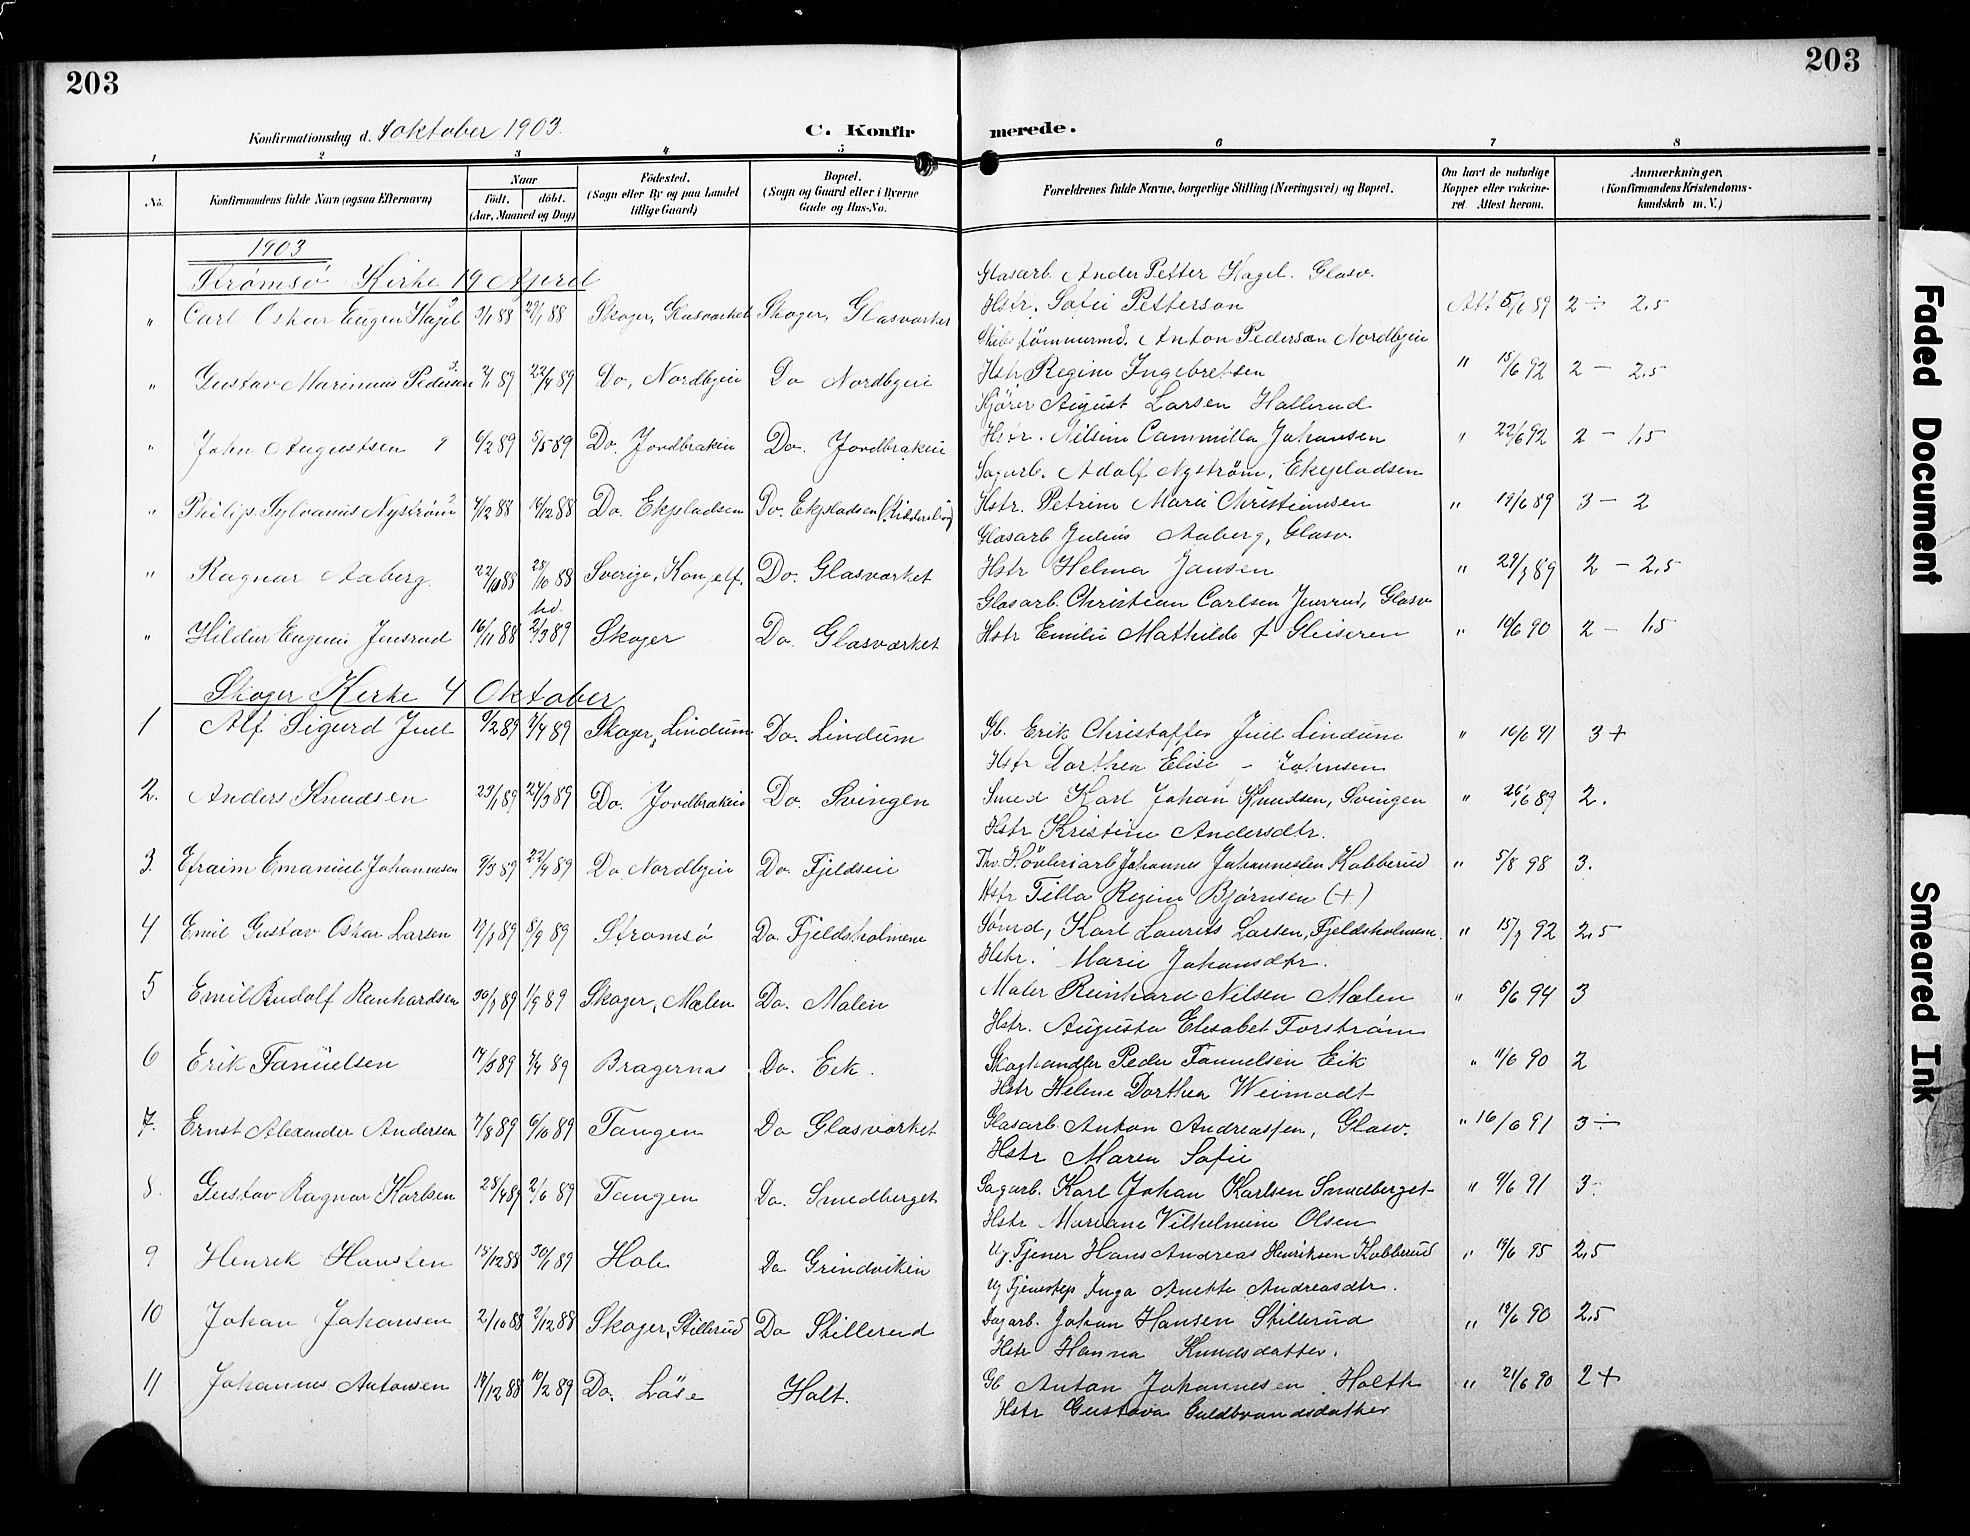 203
203
Konfirmationsdag d. 4 oktober 1903.
C. Konfir
merede.
1 2 3 4 5 6 7 8
No. Konfirmandens fulde Navn (ogsaa Efternavn) Naar Født. døbt. (Aar, Maaned og Dag) Fødested. (Sogn eller By og paa Landet tillige Gaard) Bopæl. (Sogn og Gaard eller i Byerne Gade og Hus-No. Forældrenes fulde Navne, borgerlige Stilling (Næringsvei) og Bopæl. Om havt de naturlige Kopper eller vakcineret. Attest herom. Anmærkninger, (Konfirmandens Kristendomskundskab m. V.)
1903
Strømsø Kirke 19 April
Glasarb. Ander Petter Hagel. Glasv.
" Carl Oskar Eugen Hagel 88 88 Skoger, Glasværket Skoger, Glasværket Hstr. Sofie Petterson Att 5/6 89 2 ÷ 2.5
Skibstømmermd. Anton Pedersen Nordbyeie
" Gustav Marinius Pedersen 89 22/4 89 Do, Nordbyeie Do Nordbyeie Hstr Regine Ingebretsen " 15/6 92 2 – 2.5
Kjører August Larsen Hallerud
" John Augustsen 6/2 89 5/5 89 Do. Jordbrækeie Do. Jordbrækeie Hstr. Nilsine Cammilla Johansen " 22/6 92 2 – 1.5
Sagarb. Adolf Nystrøm, Ekepladsen
" Philip Sylvanus Nystrøm 4/12 88 88 Do. Ekpladsen Do. Ekpladsen Hstr. Petrine Marie Christiansen " 19/6 89 3 – 2
Glasarb Julius Aaberg, Glasv.
" Ragnar Aaberg. 22/10 88 28/10 88 Sverige, Kongelf. Do. Glasværket Hstr Helma Jansen " 89 2 – 2.5
Glasarb. Christian Carlsen Jensrud, Glasv
" Hildur Eugenie Jensrud 16/11 88 hd. 2/3 89 Skoger Do. Glasværket Hstr Emilie Mathilde f Gleiseren " 90 2 – 1.5
Skoger Kirke 4 Oktober
1 Alf Sigurd Juel 9/2 89 7/4 89 Skoger, Lindum Do. Lindum Gb. Erik Christoffer Juel Lindum " 16/6 91 3+
Hstr Dorthea Elise – Johnsen
2. Anders Knudsen 23/1 89 24/3 89 Do. Jordbrækeie Do. Svingen Smed Karl Johan Knudsen, Svingen " 26/6 89 2.
Hstr Kristine Andersdtr.
3. Efraim Emanuel Johannesen 9/3 89 22/4 89 Do Nordbyeie Do. Fjeldseie Høvleriarb Johannes Johannessen Kobberud " 5/8 98 3.
Hstr Tilla Regine Bjørnsen (+)
4 Emil Gustav Oskar Larsen 89 8/9 89 Strømsø Do. Fjeldsholmene Sømd, Karl Laurits Larsen, Fjeldsholmene. " 92 2,5
Hstr. Marie Johansdtr.
5 Emil Rudolf Reinhardsen 89 1/9 89 Skoger, Mælen Do. Mælen Maler Reinhard Nilsen Mælen " 5/6 94 3
Hstr. Augusta Elisabet Forstrøm
6 Erik Fanuelsen 14/3 89 89 Bragernæs Do. Eik. Skoghandler Peder Fanuelsen Eik " 11/6 90 2
Hstr Helene Dorthea Weimodt
7. Ernst Alexander Andersen 7/8 89 6/10 89 Tangen Do Glasværket Glasarb. Anton Andreassen, Glasv. " 16/6 91 3 ÷
Hstr Maren Sofie
8. Gustav Ragnar Karlsen 28/4 89 2/6 89 Tangen Do. Smedberget Sagarb. Karl Johan Karlsen Smedberget " 9/6 91 3
Hstr Mariane Vilhelmine Olsen
9 Henrik Hansten 15/12 88 30/1 89 Hole Do Grindvikein Ug. Tjener Hans Andreas Henriksen Kobberud " 95 2,5
Ug Tjenestep Inga Anette Andreasdtr.
10 Johan Johansen 2/10 88 2/12 88 Skoger, Stillerud Do Stillerud Dagarb. Johan Hansen Stillerud " 90 2,5
Hstr Hanna Knudsdatter.
11 Johannes Antonsen 88 10/2 89 Do. Løse Holt. Gb Anton Johannesen Holth " 21/6 90 2+
Hstr Gustava Guldbrandsdatter
Faded Document
Smeared Ink